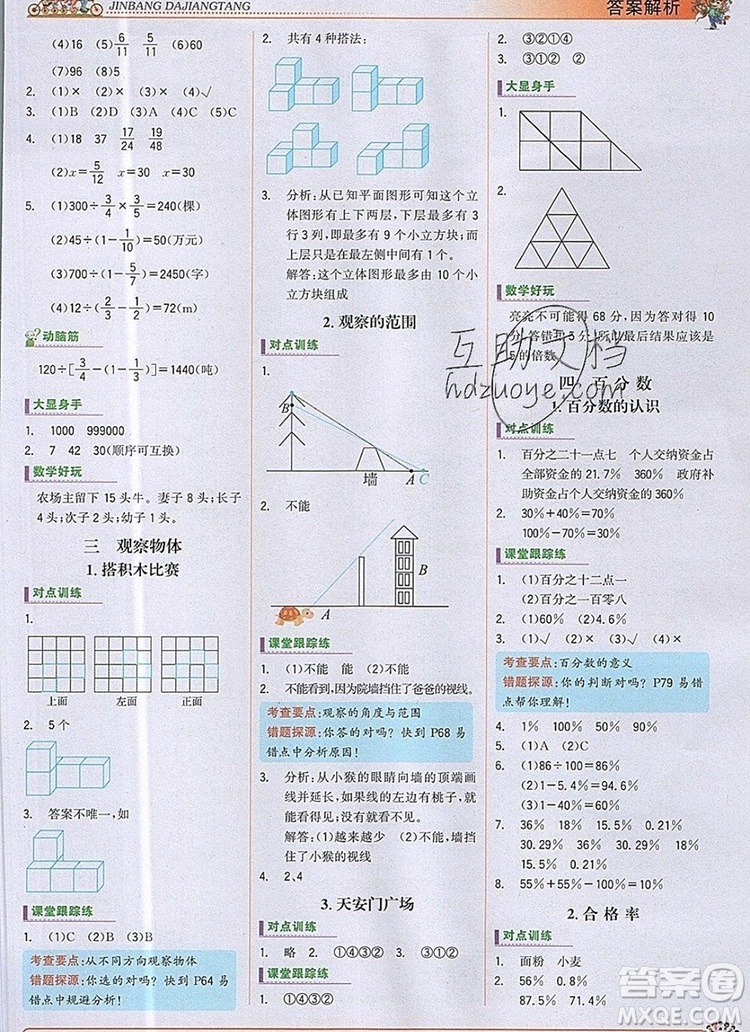 JINBANG DAJIANGTANG
答案解析
(4)16 (5)6/11 (6)5/11
(7)96 (8)5
2. (1)× (2)× (3)× (4)√
3. (1)B (2)D (3)A (4)C (5)C
4. (1)18 37 17/24 19/48
(2)x=5/12 x=30 x=30
5. (1)300÷3/4×3/5=240(棵)
(2)45÷(1-1/10)=50(万元)
(3)700÷(1-5/7)=2450(字)
(4)12÷(2/3-1/2)=72(m)
动脑筋
120÷[3/4-(1-1/3)]=1440(吨)
大显身手
1. 1000 999000
2. 7 42 30(顺序可互换)
数学好玩
农场主留下 15 头牛。妻子 8 头;长子
4 头;次子 2 头;幼子 1 头。
三 观察物体
1.搭积木比赛
对点训练
1.
上面 左面 正面
2. 5 个
3. 答案不唯一,如
课堂跟踪练
1. (1)C (2)B (3)B
考查要点:从不同方向观察物体
错题探源:你选的对吗? 快到 P64 易
错点中规避分析!
2. 共有 4 种搭法:
3. 分析:从已知平面图形可知这个立
体图形有上下两层,下面一层是 3
行 3 列,即最多有 9 个小立方块;上
面一层在最左侧中间有 1 个。
解答:这个立体图形最多由 10 个小
立方块组成
2.观察的范围
对点训练
1.
B
墙 A C
2. 不能
B
A
课堂跟踪练
1. (1)不能 能 (2)不能
2. 不能看到,因为院墙挡住了爸爸的视线。
考查要点:观察的角度与范围
错题探源:你答的对吗? 快到 P68 易
错点中分析原因!
3. 分析:从小猴的眼睛向墙的顶端画
线并延长,如果线的左边有桃子,就
能看得见;否则看不见。
解答:(1)越来越少 (2)不能,墙挡
住了小猴的视线
4. 2、4
3.天安门广场
对点训练
1. 略 2. ①④③② 3. ③①②
课堂跟踪练
1. ①④③②
2. ③②①④
3. ③① ②
大显身手
1.
2.
数学好玩
亮亮不可能得 68 分,因为答对得 10
分,答错扣 5 分,所以最后结果应该是
5 的倍数。
四 百分数
1.百分数的认识
对点训练
1. 百分之二十一点七 个人交纳资金占
全部资金的 21.7% 360% 政府补
助资金占个人交纳资金的 360%
2. 30%+40%=70%
100%-70%=30%
课堂跟踪练
1. (1)百分之十二点一
(2)百分之一百零八
2. (1)60% (2)4.6%
3. (1)√ (2)× (3)× (4)×
考查要点:百分数的意义
错题探源:你的判断对吗? P79 易错
点帮你理解!
4. 1% 100% 90%
5. (1)A (2)C
6. (1)86÷100=86%
(2)1-5.4%=94.6%
(3)2÷4=50%
7. 36% 18% 15.5% 0.21%
30.29% 36% 30.29% 18%
15.5% 0.21%
8. 55%+55%-100%=10%
2.合格率
对点训练
1. 面粉 小麦
2. 56% 0.8% 31% 210%
87.5% 71.4% 60%
互助文档
hdzuoye.com
答案圈
MXQE.COM